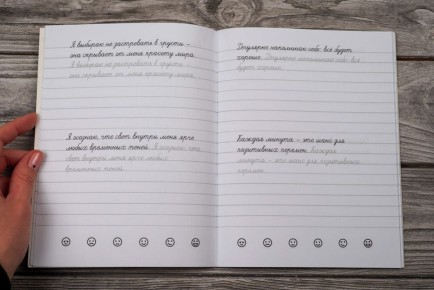 Я выбираю не застревать в грусти –
она скрывает от меня красоту мира.
Я выбираю не застревать в грусти –
она скрывает от меня красоту мира.
Я осознаю, что свет внутри меня ярче
любых временных теней. Я осознаю, что
свет внутри меня ярче любых
временных теней.
Регулярно напоминаю себе: все будет
хорошо. Регулярно напоминаю себе: все
будет хорошо.
Каждая минута – это шанс для
позитивных перемен. Каждая
минута – это шанс для позитивных
перемен.